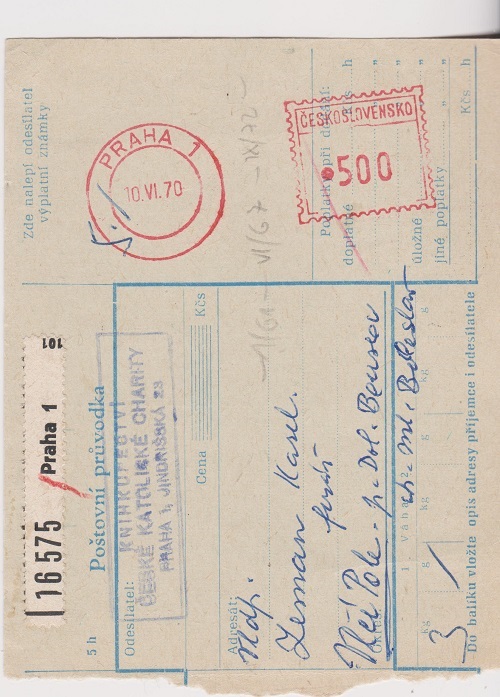 Zde nalepí odesílatel
výplatní známky
PRAHA 1
10.VI.70
ČESKOSLOVENSKO
500
Poplatky při dodání:
doplatné h
úložné " "
jiné poplatky " "
Kčs h
16575
Praha 1
101
5 h
Poštovní průvodka
Odesílatel:
KNIHKUPECTVÍ
ČESKÉ KATOLICKÉ CHARITY
PRAHA 1, JINDŘIŠSKÁ 23
Cena
Kčs
VI/67 – IX/72 –
Adresát:
Zeman Karel.
farář
Pole - p. Dol. Bousov
Váha
kg g
kg g
3
Do balíku vložte opis adresy příjemce i odesílatele